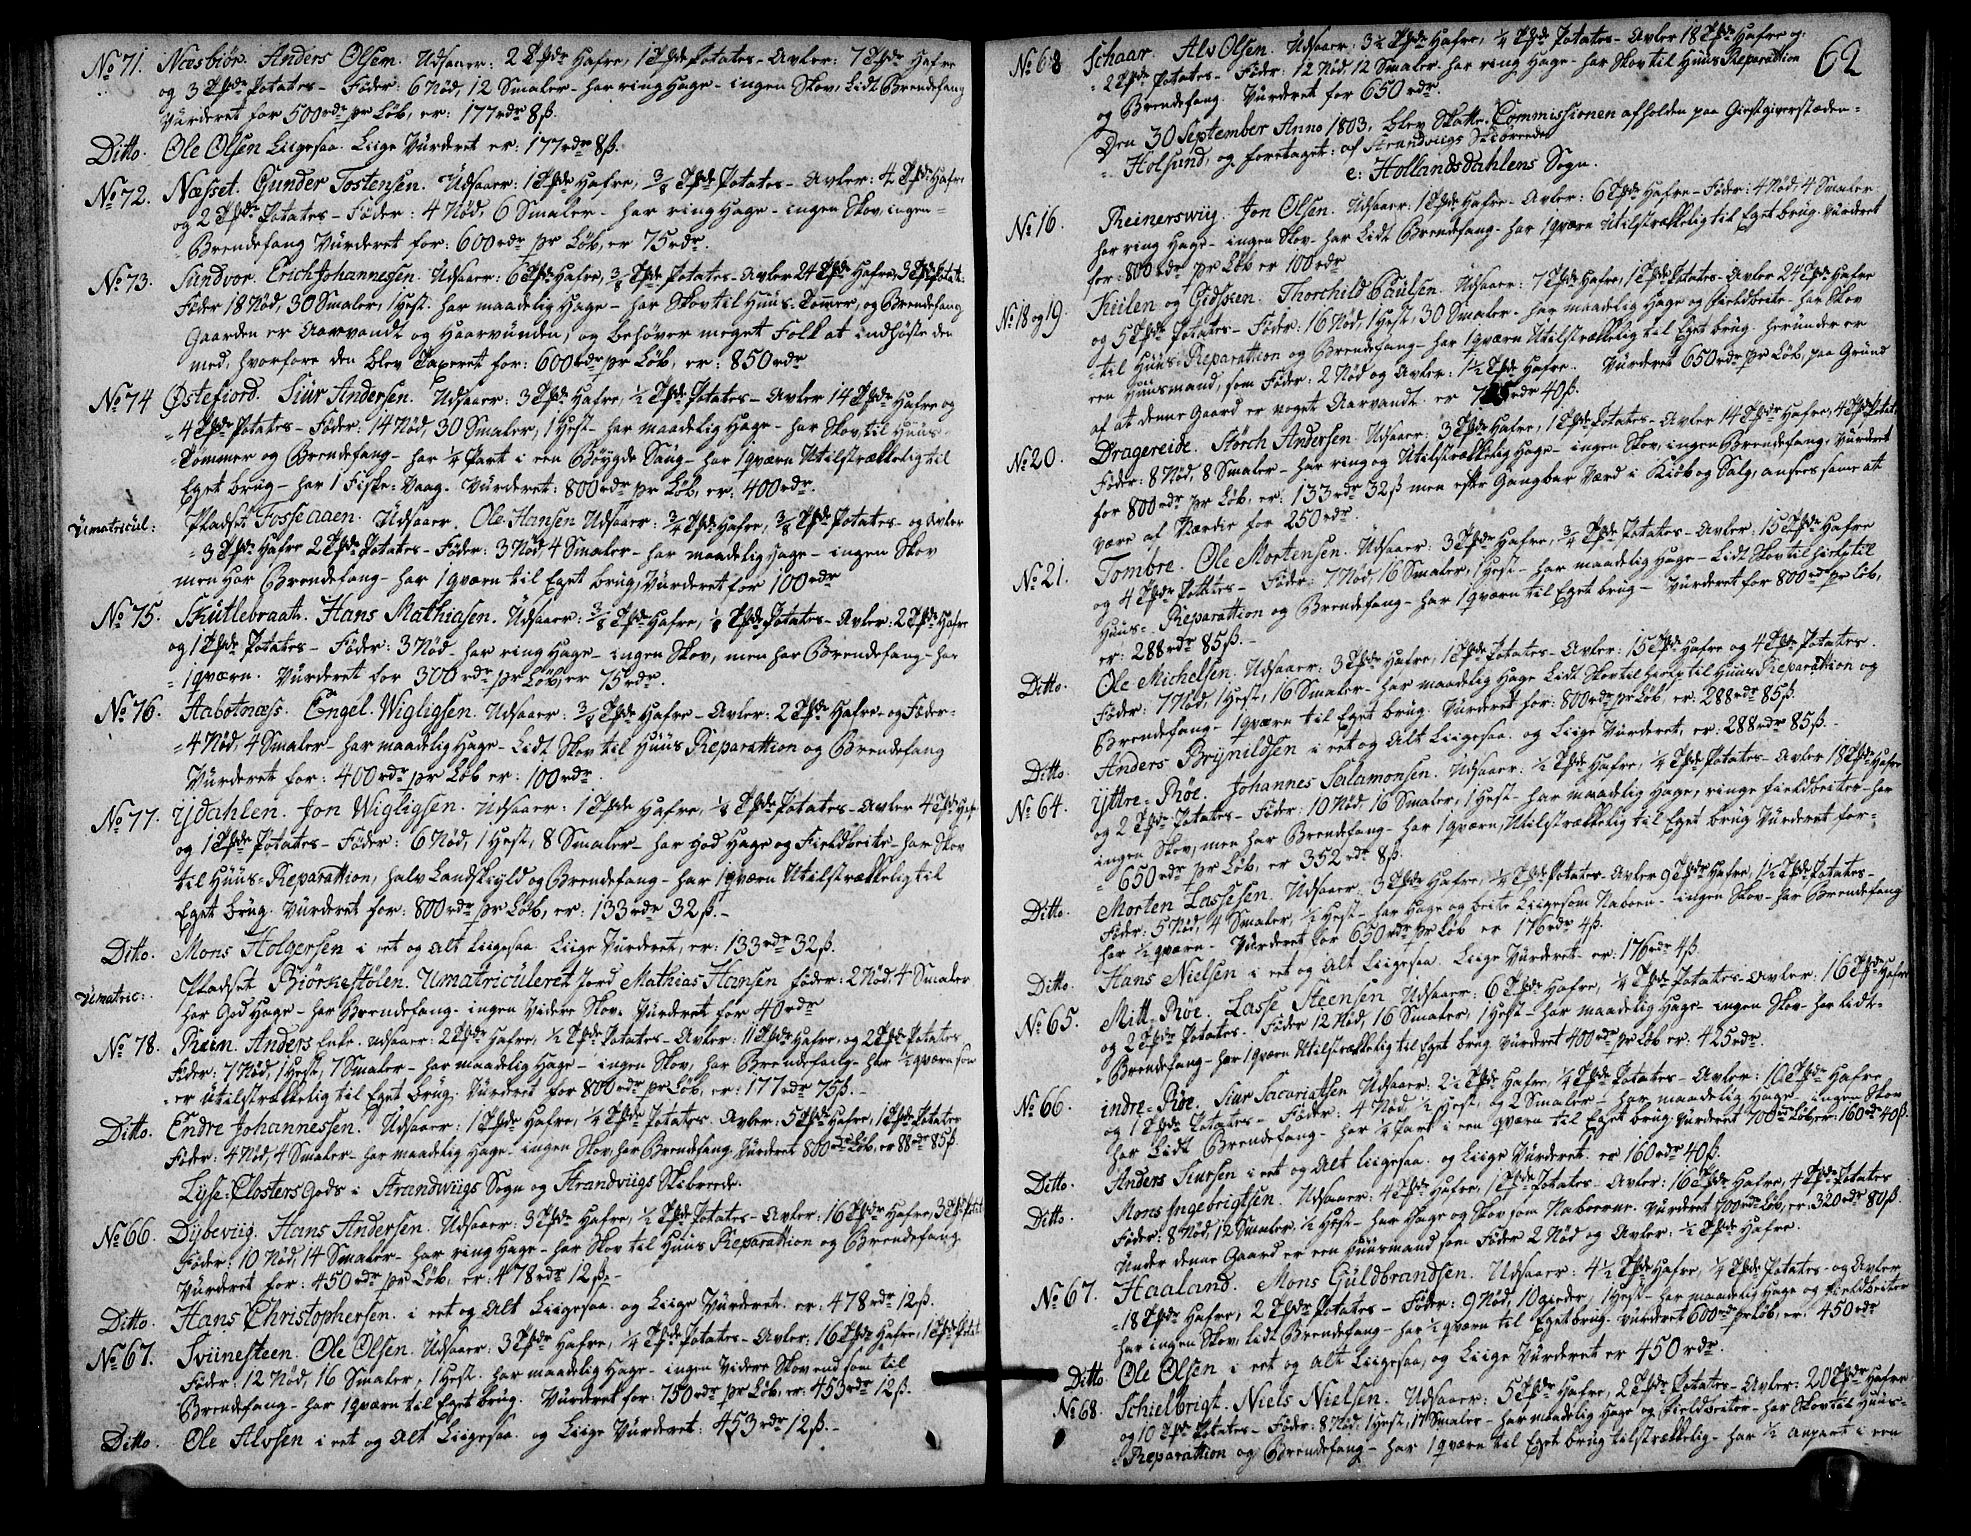 No 71. Næsbiör. Anders Olsen. Udsaaer: 2 Tdr Hafre, 1 Tdr Potates – Avler: 7 Tdr Hafre
og 3 Tdr Potates – Föder: 6 Nöd, 12 Smaler – har ring Hage – ingen Skov, Lidt Brendefang
Vurderet for 500 rdr pr Löb, er: 177 rdr 8 ß.
Ditto. Ole Olsen Liigesaa. Liige Vurderet er: 177 rdr 8 ß.
No 72. Næsset. Gunder Tostensen. Udsaaer: 1 Tdr Hafre, 3/8 Tdr Potates – Avler: 4 Tdr Hafre
og 2 Tdr Potates – Föder: 4 Nöd, 6 Smaler – har ring Hage – ingen Skov, ingen =
= Brendefang Vurderet for: 600 rdr pr Löb, er 75 rdr.
No 73. Sundvor. Erich Johannesen. Udsaaer: 6 Tdr Hafre, 3/8 Tdr Potates – Avler 24 Tdr Hafre, 3 Tdr Potat:
Föder 18 Nöd, 30 Smaler, 1 Hest. har maadelig Hage – har Skov til Huus Tömmer, og Brendefang
Gaarden er Aarvandt og Haarvunden, og behöver meget Folk at indhöste den
med, hvorfore den blev Taxeret for: 600 rdr pr Löb, er: 850 rdr
No 74 Östefiord. Siur Andersen. Udsaaer: 3 Tdr Hafre, 1/2 Tdr Potates – Avler 14 Tdr Hafre og
= 4 Tdr Potates – Föder: 14 Nöd, 30 Smaler, 1 Hest – har maadelig Hage – har Skov, til Huus =
Tömmer og Brendefang – har 1/4 Part i een Böygde Saug – har 1 qværn Utilstrækkelig til
Eget brug – har 1 Fiske-Vaag. Vurderet: 800 rdr pr Löb, er: 400 rdr.
Umatricul: Pladset Fosseaaen. Udsaaer. Ole Hansen Udsaaer: 3/4 Tdr Hafre, 3/8 Tdr Potates – og Avler
= 3 Tdr Hafre 2 Tdr Potates – Föder: 3 Nöd, 4 Smaler – har maadelig Hage – ingen Skov
men har Brendefang – har 1 qværn til Eget brug, Vurderet for 100 rdr
No 75. Skutlebraath. Hans Mathiasen. Udsaaer: 3/8 Tdr Hafre, 1/8 Tdr Potates – Avler: 2 Tdr Hafre
og 1 Tdr Potates – Föder: 3 Nöd – har ring Hage – ingen Skov, men har Brendefang – har
= 1 qværn. Vurderet for 300 rdr pr Löb, er 75 rdr.
No 76. Aabotnæss. Engel Wigligsen. Udsaaer: 3/8 Tdr Hafre – Avler: 2 Tdr Hafre – og Föder =
= 4 Nöd, 4 Smaler – har maadelig Hage – Lidt Skov til Huus Reparattion og Brendefang
Vurderet for: 400 rdr pr Löb er: 100 rdr.
No 77. Ydahlen. Jon Wigligsen. Udsaaer: 1 Tdr Hafre, 1/8 Tdr Potates – Avler 4 Tdr Hafr
og 1 Tdr Potates – Föder: 6 Nöd, 1 Hest, 8 Smaler – har god Hage og Fieldbeite – har Skov
til Huus = Reparattion, halv Landskyld og Brendefang – har 1 qværn Utilstrækkelig til
Eget brug. Vurderet for: 800 rdr pr Löb, er: 133 rdr 32 ß. –
Ditto. Mons Holgersen i eet og alt Liigesaa. Liige Vurderet, er: 133 rdr 32 ß.
Umatric: Pladset Biörnestölen. Umatriculeret Jord Mathias Hansen föder: 2 Nöd, 4 Smaler
har God Hage – har Brendefang – ingen Videre Skov. Vurderet for 40 rdr
No 78. Ræim. Anders Enke. udsaaer: 2 Tdr Hafre, 1/2 Tdr Potates – Avler: 11 Tdr Hafre, og 2 Tdr Potates
Föder: 7 Nöd, 1 Hest, 7 Smaler – har maadelig Hage – ingen Skov, har Brendefang – har 1/2 qværn som
= er utilstrækkelig til Eget brug. Vurderet for 800 rdr pr Löb, er: 177 rdr 75 ß. –
Ditto. Endre Johannessen. Udsaaer: 1 Tdr Hafre, 1/4 Tdr Potates – Avler: 5 Tdr Hafre, 1 Tdr Potater
Föder: 4 Nöd, 4 Smaler – har maadelig Hage – ingen Skov, har Brendefang Vurderet 800 rdr Löb, er 88 rdr 85 ß.
Lyse-Closters Gods i Strandwiigs Sogn og Strandviigs Skibrede.
No 66. Dybeviig. Hans Andersen. Udsaaer: 3 Tdr Hafre, 1/2 Tdr Potates – Avler: 16 Tdr Hafre, 3 Tdr Potat:
Föder: 10 Nöd, 14 Smaler – har ring Hage – har Skov til Huus Reparattion og Brendefang
Vurderet for: 450 rdr pr Löb, er: 478 rdr 12 ß. –
Ditto. Hans Christophersen. i eet og alt Liigesaa. og Liige Vurderet. er: 478 rdr 12 ß.
No 67. Sviinesteen. Ole Olsen. Udsaaer: 3 Tdr Hafre, 1/4 Tdr Potates – Avler: 16 Tdr Hafre, 1 Tdr Potat:
Föder: 12 Nöd, 16 Smaler, 1 Hest. har maadelig Hage – ingen Videre Skov end som til
Brendefang – har 1 qværn til Eget brug. Vurderet for: 750 rdr pr Löb, er: 453 rdr 12 ß.
Ditto. Ole Alvsen i eet og Alt Liigesaa. og Liige Vurderet: 453 rdr 12 ß. –
62
No 68 Schaar. Als Olsen. Udsaaer: 3 1/2 Tdr Hafre, 1/4 Tdr Potates – Avler 18 Tdr Hafre og
= 2 Tdr Potates – Föder: 12 Nöd, 12 Smaler – har ring Hage – har Skov til Huus Reparattion
og Brendefang. Vurderet for 650 rdr.
Den 30 September Anno 1803. blev Skatte-Commissionen afholden paa Giestgiverstæden =
= Holsund, og foretaget: af Strandviigs Skibreede
e: Hollandsdahlens Sogn.
No 16. Reinerswiig. Jon Olsen. Udsaaer: 1 Tdr Hafre – Avler: 6 Tdr Hafre – Föder: 4 Nöd, 4 Smaler
har ring Hage – ingen Skov – har Lidt Brendefang – har 1 qværn Utilstrækkelig til Eget brug. Vurderet
for: 800 rdr pr Löb er 100 rdr
No 18 og 19. Kiilen og Gidsken. Thorchild Paulsen. Udsaaer: 7 Tdr Hafre, 1 Tdr Potates – Avler 24 Tdr Hafre
og 5 Tdr Potates – Föder: 16 Nöd, 1 Hest, 30 Smaler – har maadelig Hage og Fieldbeite – har Skov
= til Huus Reparattion og Brendefang – har 1 qværn Utilstrækkelig til Eget brug. herunder er
een Huusmand, som Föder: 2 Nöd og Avler: 1 1/2 Tdr Hafre. Vurderet 650 rdr pr Löb, paa Grund
af at denne Gaard er meget Aarvandt er rdr 40 ß.
No 20. Dragereide. Störch Andersen. Udsaaer: 3 Tdr Hafre, 1 Tdr Potates – Avler 14 Tdr Hafre, 4 Tdr Potat:
Föder: 8 Nöd, 8 Smaler – har ring og Utilstrækkelig Hage – ingen Skov, ingen Brendefang, Vurderet
for 800 rdr pr Löb, er: 133 rdr 32 ß men efter Gangbar Værd i Kiöb og Salg, ansees samme at
være af Værdie for 250 rdr.
No 21. Tombre. Ole Mortensen. Udsaaer: 3 Tdr Hafre, 3/4 Tdr Potates – Avler: 15 Tdr Hafre
og 4 Tdr Pottates – Föder: 7 Nöd, 16 Smaler, 1 Hest – har maadelig Hage – Lidt Skov til hielp til
Huus = Reparattion og Brendefang – har 1 qværn til Eget brug – Vurderet for 800 rdr pr Löb,
er: 288 rdr 85 ß. –
Ditto. Ole Michelsen. Udsaaer: 3 Tdr Hafre, 1 Tdr Potates – Avler: 15 Tdr Hafre og 4 Tdr Potates
Föder: 7 Nöd, 1 Hest, 16 Smaler – har maadelig Hage Lidt Skov til hielp til Huus Reparattion og
Brendefang – 1 qværn til Eget brug. Vurderet for: 800 rdr pr Löb, er: 288 rdr 85 ß.
Ditto. Anders Brynildsen i eet og Alt Liigesaa. og Liige Vurderet, er: 288 rdr 85 ß. –
No 64. Yttre-Röe. Johannes Salamonsen. Udsaaer: 1/2 Tdr Hafre, 1/4 Tdr Potates – Avler 18 Tdr Hafre
og 2 Tdr Potates – Föder: 10 Nöd, 16 Smaler, 1 Hest – har maadelig Hage, ringe Fieldbeiter – har
ingen Skov, men har Brendefang – har 1 qværn, Utilstrækkelig til Eget brug Vurderet for –
= 650 rdr pr Löb, er 352 rdr 8 ß.
Ditto. Morten Lassesen. Udsaaer: 3 Tdr Hafre, 1/4 Tdr Potates – Avler 9 Tdr Hafre, 1 1/2 Tdr Potates –
Föder: 5 Nöd, 4 Smaler, 1/2 Hest – har Hage og beite Liigesom Naboen – ingen Skov – har Brendefang
har 1/2 qværn – Vurderet for 650 rdr pr Löb er 176 rdr 4 ß.
Ditto. Hans Nielsen i eet og Alt Liigesaa. Liige Vurderet. er: 176 rdr 4 ß.
No 65. Mitt-Röe. Lasse Steensen Udsaaer: 6 Tdr Hafre, 1/4 Tdr Potates – Avler: 16 Tdr Hafre
og 2 Tdr Potates – Föder 12 Nöd, 16 Smaler, 1 Hest – har maadelig Hage – ingen Skov – har lidt –
= Brendefang – har 1 qværn Utilstrækkelig til Eget brug Vurderet 400 rdr pr Löb er: 425 rdr.
No 66. indre-Röe. Siur Sacariatsen Udsaaer: 2 1/2 Tdr Hafre, 1/4 Tdr Potates – Avler: 10 Tdr Hafre
og 1 Tdr Potates – Föder: 4 Nöd, 1/2 Hest, og 2 Smaler – har maadelig Hage – ingen Skov
har Lidt Brendefang – har 1/4 Part i een qværn til Eget brug Vurderet 700 rdr Löb er: 160 rdr 40 ß.
Ditto. Anders Siursen i eet og Alt liigesaa. og Liige Vurderet. er 160 rdr 40 ß.
Ditto. Mons Ingebrigtsen. Udsaaer: 4 Tdr Hafre, 1 Tdr Potates – Avler: 16 Tdr Hafre, 4 Tdr Potates
Föder: 8 Nöd, 12 Smaler. 1/2 Hest – har Hage og Skov som Naboerne. Vurderet 700 rdr Löb, er: 320 rdr 80 ß.
Under denne Gaard er een Huusmand som Föder 2 Nöd og Avler: 1/2 Tdr Hafre.
No 67. Haaland. Mons Guldbrandsen. Udsaaer: 4 1/2 Tdr Hafre, 1/4 Tdr Potates – og Avler
= 18 Tdr Hafre, 2 Tdr Potates – Föder: 9 Nöd, 10 gieder, 1 Hest – har maadelig Hage og Fieldbeiter
har ingen Skov, lidt Brendefang – har 1/2 qværn til Eget brug. Vurderet 600 rdr pr Löb, er: 450 rdr
Ditto Ole Olsen i eet og Alt Liigesaa, og Liige Vurderet er 450 rdr.
No 68 Schielbrigt. Niels Nielsen. Udsaaer: 5 Tdr Hafre, 2 Tdr Potates – Avler: 20 Tdr Hafre
og 10 Tdr Potates – Föder: 8 Nöd, 1 Hest, 17 Smaler – har maadelig Hage og Fieldbeiter – har Skov til Huus =
= Reparattion og Brendefang – har 1 qværn til Eget brug tilstrækkelig – har 1/2 Anpart i een